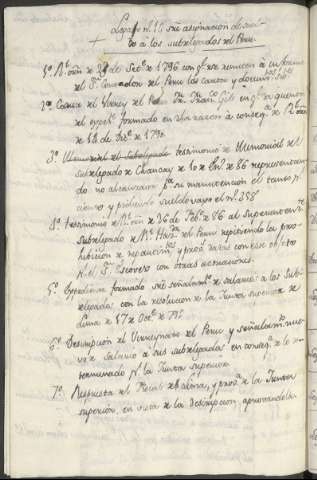 Legajo nº 16 sre asignacion de suel-
do á los subdelegados del Peru.
1º Rl orn de 29 de Sete de 1796 con qe se remiten á informe
del Sr Contador del Peru los
2º Carta del Virrey del Peru Fr. Franco Gil en qe da quenta
del expte formado en razon á conseqa de Rl orn
de 1790.
3º Memorial del Subdelegado testimonio de Memorial del
Subdelegado de Chancay de 10 de Eno de 86 representan-
do no alcanzar pa su manutencion el tanto pr
ciento y pidiendo sueldo
4º testimonio de Rl orn de 26 de Feb de 86 al Superintente
subdelegado de Rl Hacda del Peru repitiendo la pro-
hibicion de repartimtos con este objeto
pr el Sr Escovedo con otras actuaciones.
5º Expediente formado sre señalamto de salario á los Sub-
delegados con la resolucion de la Junta superior de
Lima de 17 de Octe de
6º Descripcion del Virreynato del Peru y señalamto nue-
vo de salario á sus subdelegados en conseqa de lo de-
terminado pr la Junta superior.
7º Respuesta del Fiscal de Lima, y de la Junta
superior, en vista de la descripcion, aprovandola